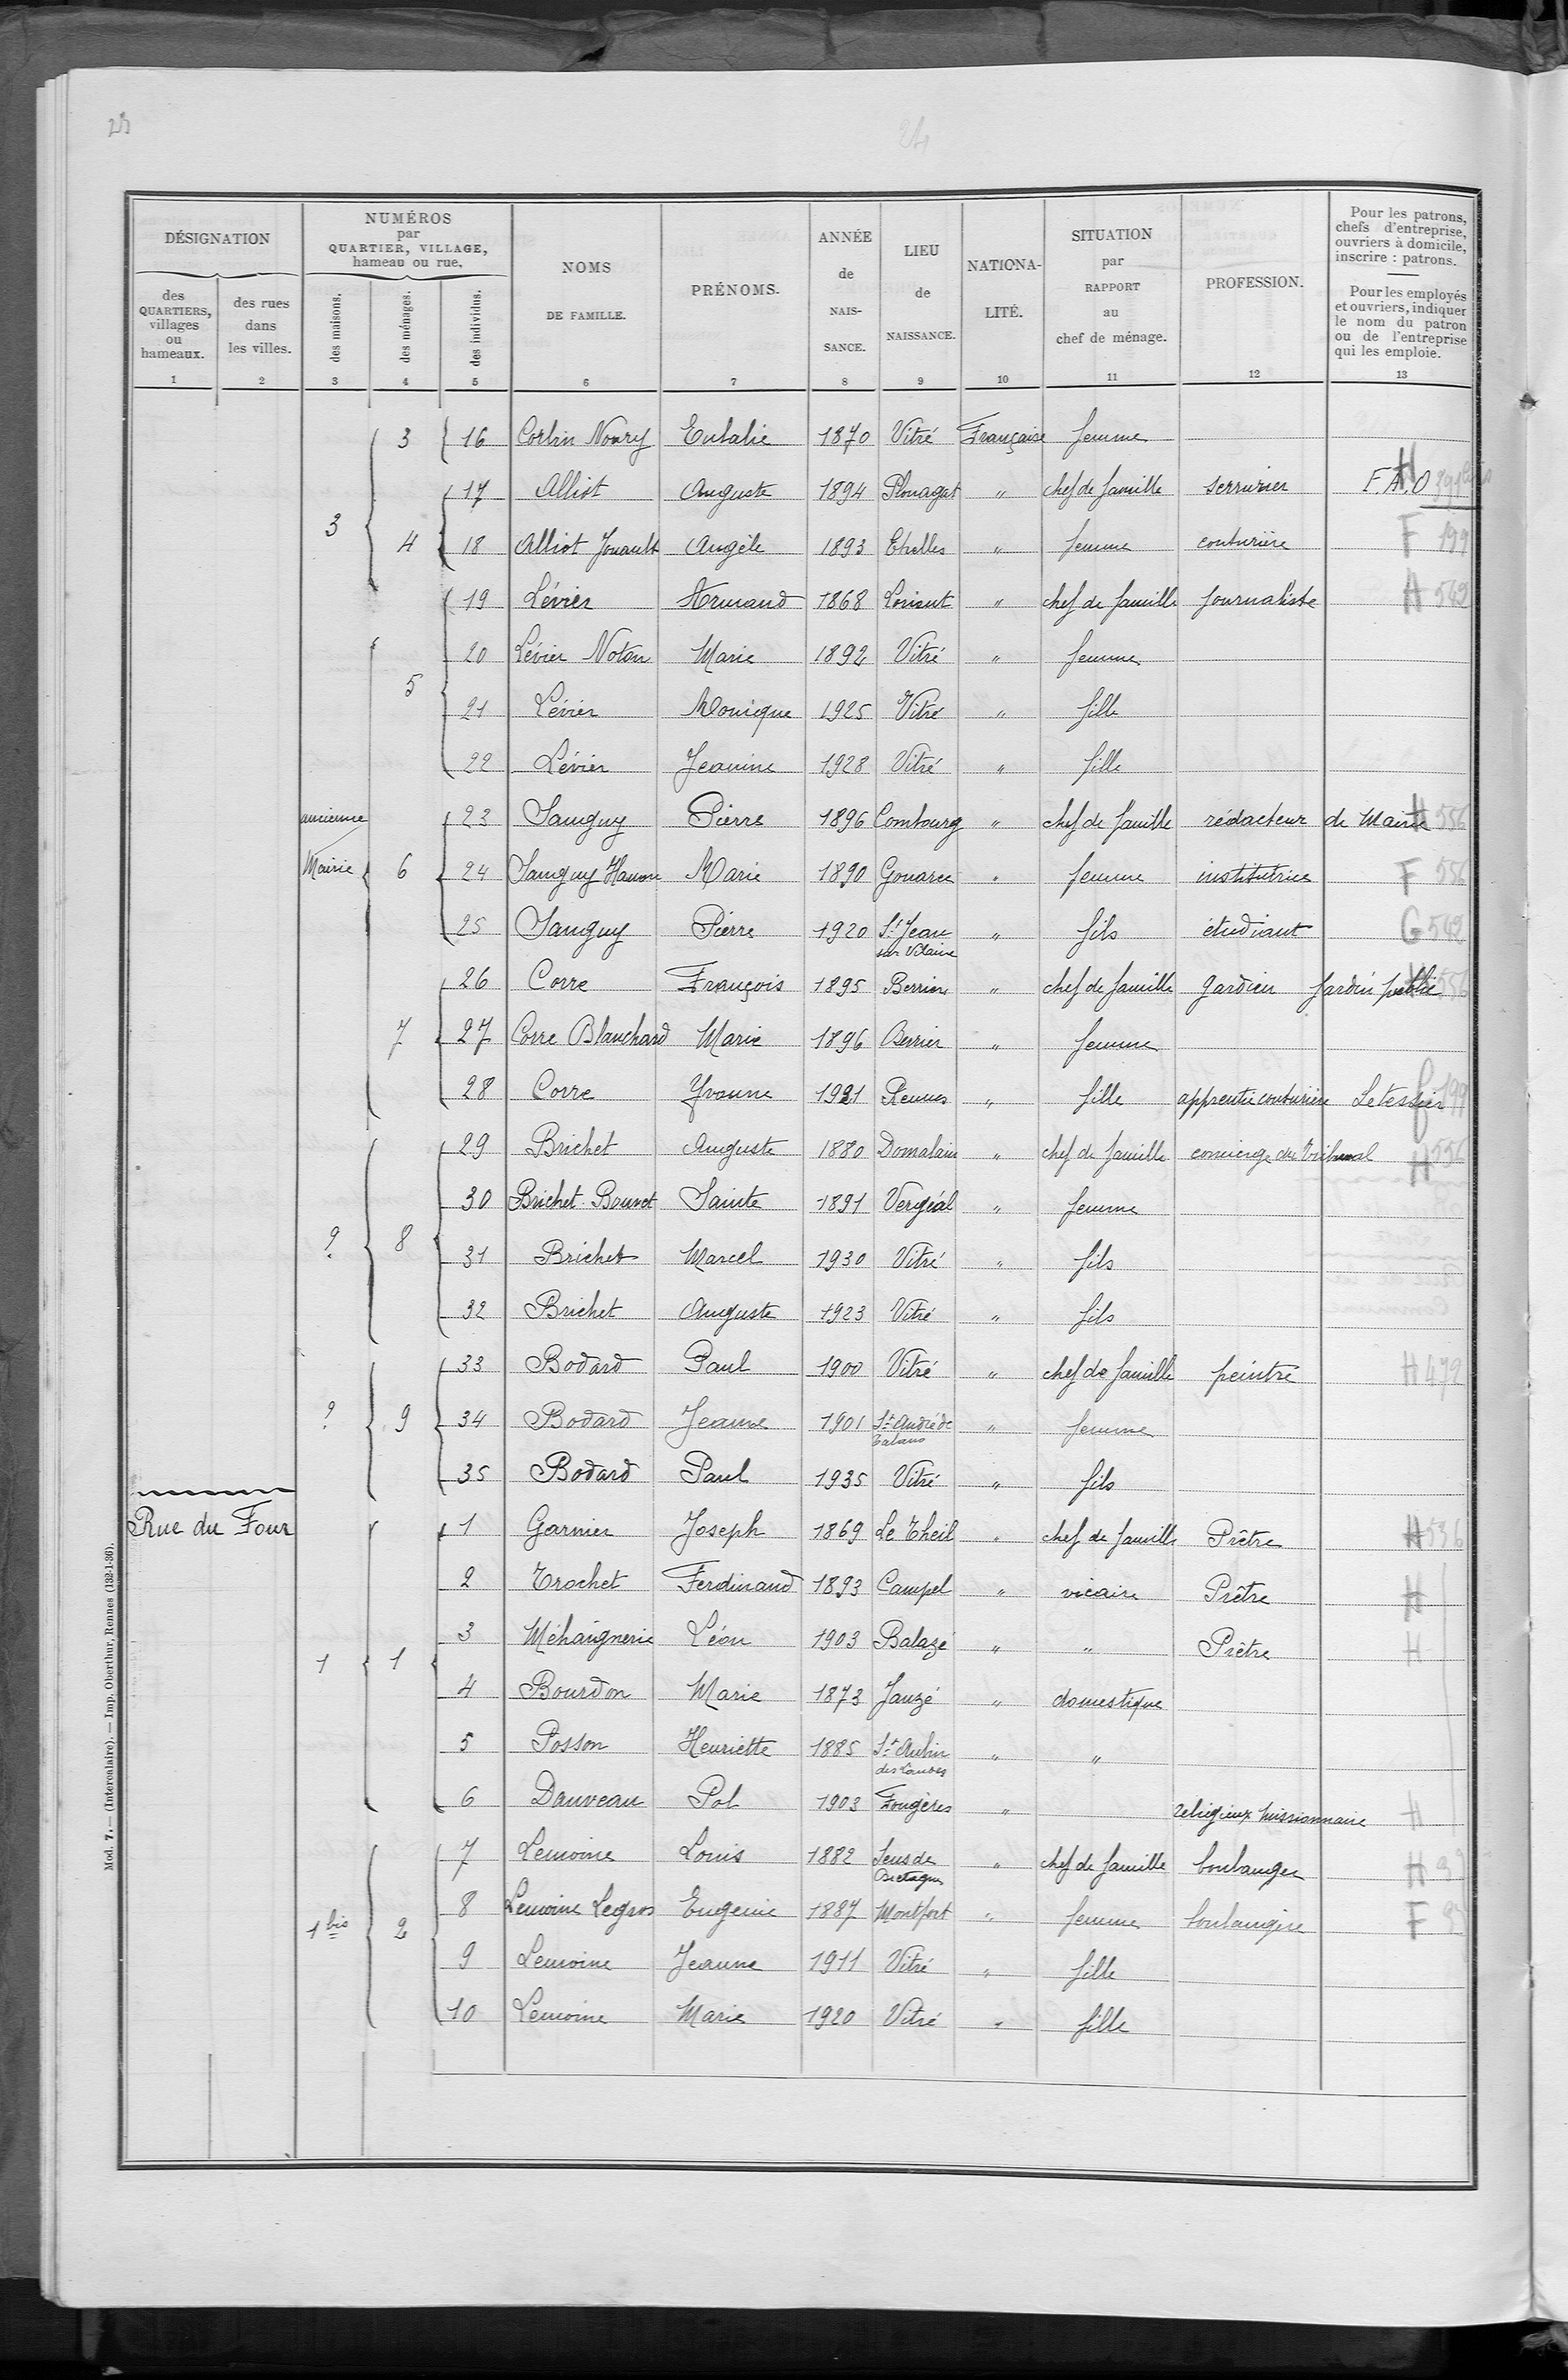 DÉSIGNATION
NUMÉROS
par
QUARTIER, VILLAGE,
hameau ou rue.
NOMS
DE FAMILLE.
PRÉNOMS.
ANNÉE
de
NAIS-
SANCE.
LIEU
de
NAISSANCE.
NATIONA-
LITÉ.
SITUATION
par
RAPPORT
au
chef de ménage.
PROFESSION.
Pour les patrons,
chefs d'entreprise,
ouvriers à domicile,
inscrire : patrons.
Pour les employés
et ouvriers, indiquer
le nom du patron
ou de l'entreprise
qui les emploie.
des
QUARTIERS,
villages
ou
hameaux.
des rues
dans
les villes.
des maisons.
des ménages.
des individus.
1 2 3 4 5 6 7 8 9 10 11 12 13
3 16 Corbin Noury Eulalie 1870 Vitré Française femme
17 Alliot Auguste 1894 Plouagat " chef de famille serrurier F.A.O H
3 4 18 Alliot Jouault Angèle 1893 Etrelles " femme couturière F 199
19 Lévier Armand 1868 Lorient " chef de famille journaliste H 549
20 Lévier Noton Marie 1892 Vitré " femme
5 21 Lévier Monique 1925 Vitré " fille
22 Lévier Jeanine 1928 Vitré " fille
ancienne 23 Sauguy Pierre 1896 Combourg " chef de famille rédacteur de Mairie H 556
Mairie 6 24 Sauguy Hamon Marie 1890 Gouarec " femme institutrice F 556
25 Sauguy Pierre 1920 St Jean sur Vilaine " fils étudiant G 549
26 Corre François 1895 Berrien " chef de famille gardien jardin public H 556
7 27 Corre Blanchard Marie 1896 Berrien " femme
28 Corre Yvonne 1921 Rennes " fille apprentie couturière Letessier f 199
29 Brichet Auguste 1880 Domalain " chef de famille concierge du Tribunal H 556
30 Brichet Bouvet Sainte 1891 Vergéal " femme
? 8 31 Brichet Marcel 1930 Vitré " fils
32 Brichet Auguste 1923 Vitré " fils
33 Bodard Paul 1900 Vitré " chef de famille peintre H 479
? 9 34 Bodard Jeanne 1901 St André de " femme
35 Bodard Paul 1935 Vitré " fils
Rue du Four 1 Garnier Joseph 1869 Le Theil " chef de famille Prêtre H 536
2 Trochet Ferdinand 1893 Campel " vicaire Prêtre H
3 Méhaignerie Léon 1903 Balazé " " Prêtre H
1 1 4 Bourdon Marie 1873 Janzé " domestique
5 Posson Henriette 1885 St Aubin des Landes " "
6 Dauveau Pol 1903 Fougères " religieux missionnaire H
7 Lemoine Louis 1882 Sens de Bretagne " chef de famille boulanger H
1 bis 2 8 Lemoine Legros Eugénie 1887 Montfort " femme boulangère F
9 Lemoine Jeanne 1911 Vitré " fille
10 Lemoine Marie 1920 Vitré " fille
Mod. 7. — (Intercalaire). — Imp. Oberthur, Rennes (132-1-36).